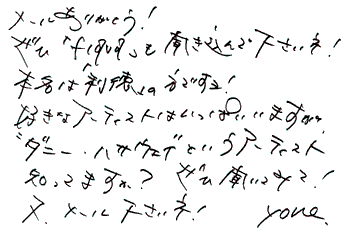 メールありがとう!
ぜひ「figua」も聞き込んで下さいネ!
本名は利徳の方です!
好きなアーティストはいっぱいいますが
"ダニー・ハサウェイ"というアーティスト
知ってますか? ぜひ聞いてみて!
又、メール下さいネ! yone.